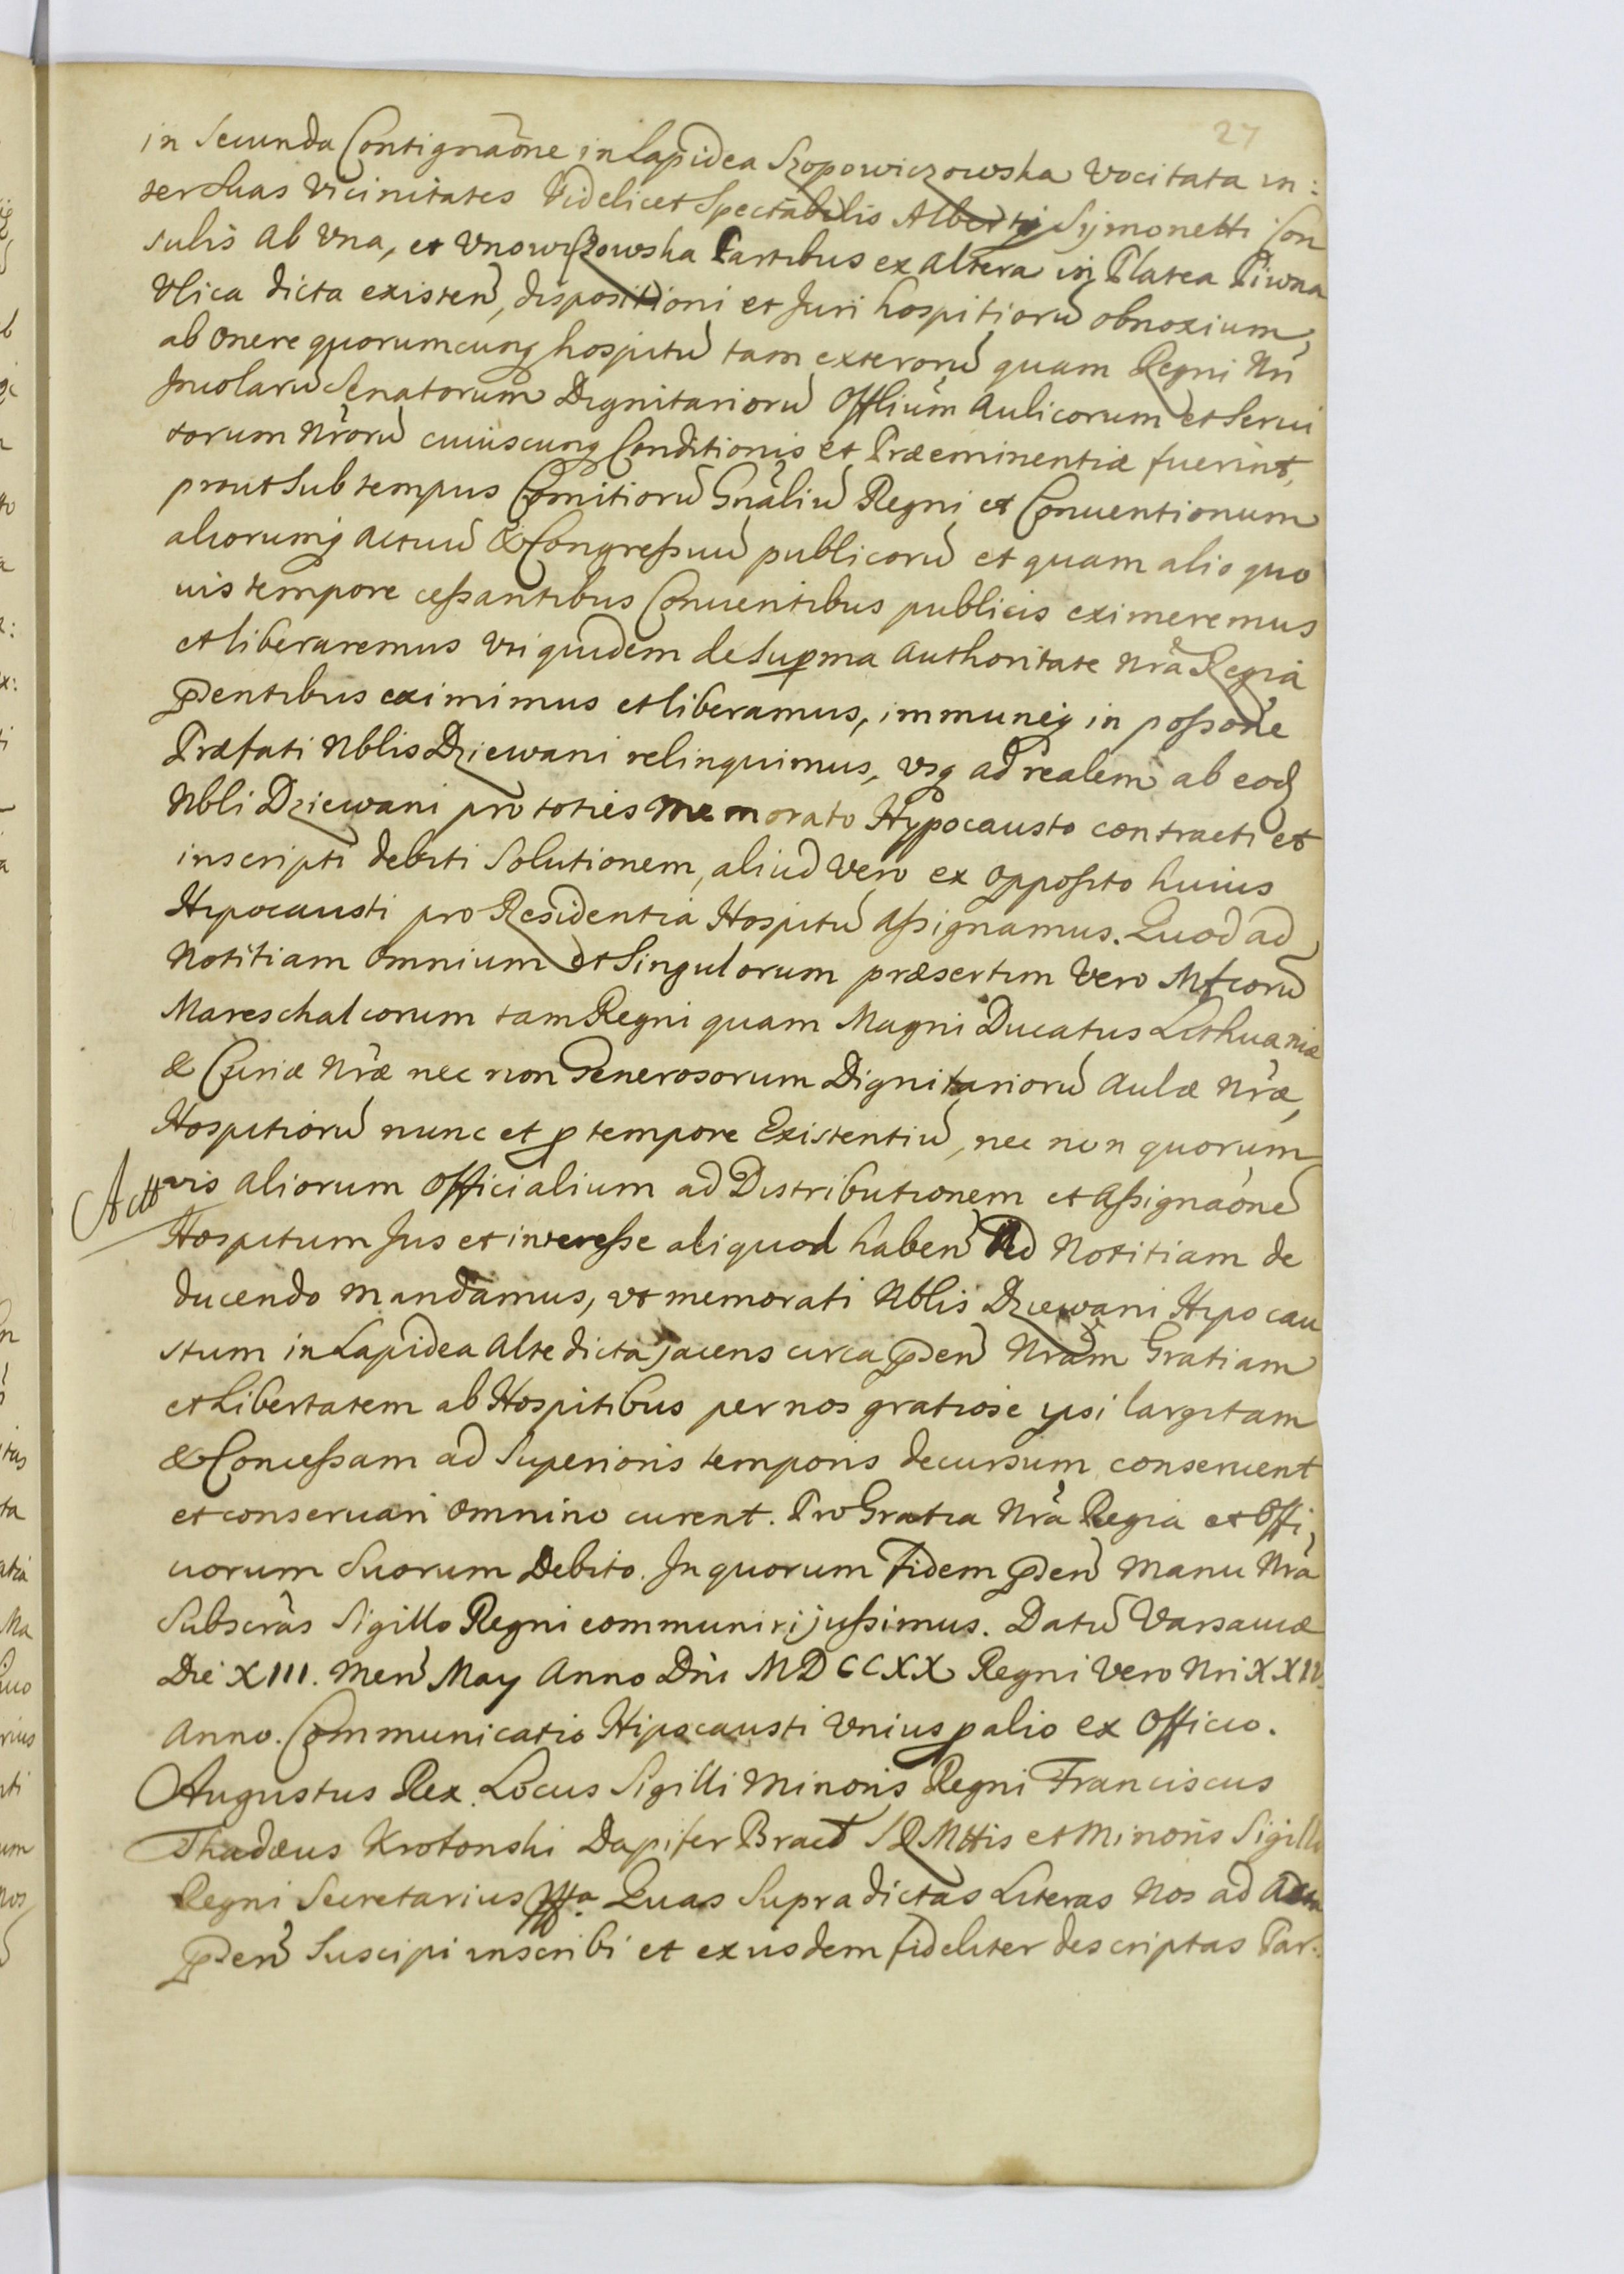 27
in Secunda Contignaõne in Lapidea Szopowiczowska Vocitata in:
ter Suas Vicinitates Videlicet Spectabilis Alberti Sijmonetti Con
sulis ab Vna, et Partibus ex altera in Platea Piwna
Vlica dicta existeñ, dispositioni et Juri hospitiorũ obnoxium,
ab onere quorumcunq hospitũ tam exterorũ quam Regni Nri
Incolarũ Senatorum Dignitariorũ Offlium Aulicorum et Serui
torum Nrorũ cuiuscunq Conditionis et Præeminentiæ fuerint,
prout Sub tempus Comitiorũ Gnãliũ Regni et Conuentionum
aliorumq actuũ & Congressuũ publicorũ et quam alio quo
uis tempore cessantibus Conuentibus publicis eximeremus
et liberaremus Vti quidem de Suprma Authoritate Nrã Regia
pñtibus eximimus et liberamus, immuneq in possone
Præfati Nblis Dziewani relinquimus, vsq ad realem ab eod
Nbli Dziewani pro toties memorato Hypocausto contracti et
inscripti debiti Solutionem, aliud Vero ex opposito huius
Hipocausti pro Residentia Hospitũ assignamus. Quod ad
Notitiam omnium et Singulorum præsertim Vero Mfcorũ
Mareschalcorum tam Regni quam Magni Ducatus Lithuaniæ
& Curiæ Nræ nec non Generosorum Dignitariorũ Aulæ Nræ,
Hospitiorũ nunc et p tempore Existentiũ, nec non quorum
vis aliorum Officialium ad Distributionem et Assignaõnẽ
Hospitum Jus et interesse aliquod habeñ Ad Notitiam de
ducendo mandamus, vt memorati Nblis Dziewani Hipocau
stum in Lapidea alte dicta jacens circa pñdeñ Nram Gratiam
et Libertatem ab Hospitibus per nos gratiose ipsi largitam
& Concessam ad Superioris temporis decursum conseruent
et conseruari omnino curent. Pro Gratia Nrã Regia et Offi,
ciorum Suorum Debito. In quorum Fidem pñdeñ Manu Nrã
Subscrãs Sigillo Regni communiri jussimus. Datũ Varsauiæ
Die XIII. Meñ May Anno Dñi MDCCXX Regni Vero Nri XXIV
Anno. Communicatio Hipocausti Vnius p alio ex Officio.
Augustus Rex. Locus Sigilli Minoris Regni Franciscus
Thadæus Krotonski Dapifer S R Mttis et Minoris Sigilli
Regni Secretarius Quas Supradictas Literas Nos ad Acta
pñdeñ Suscipi inscribi et exijsdem fideliter descriptas Par: